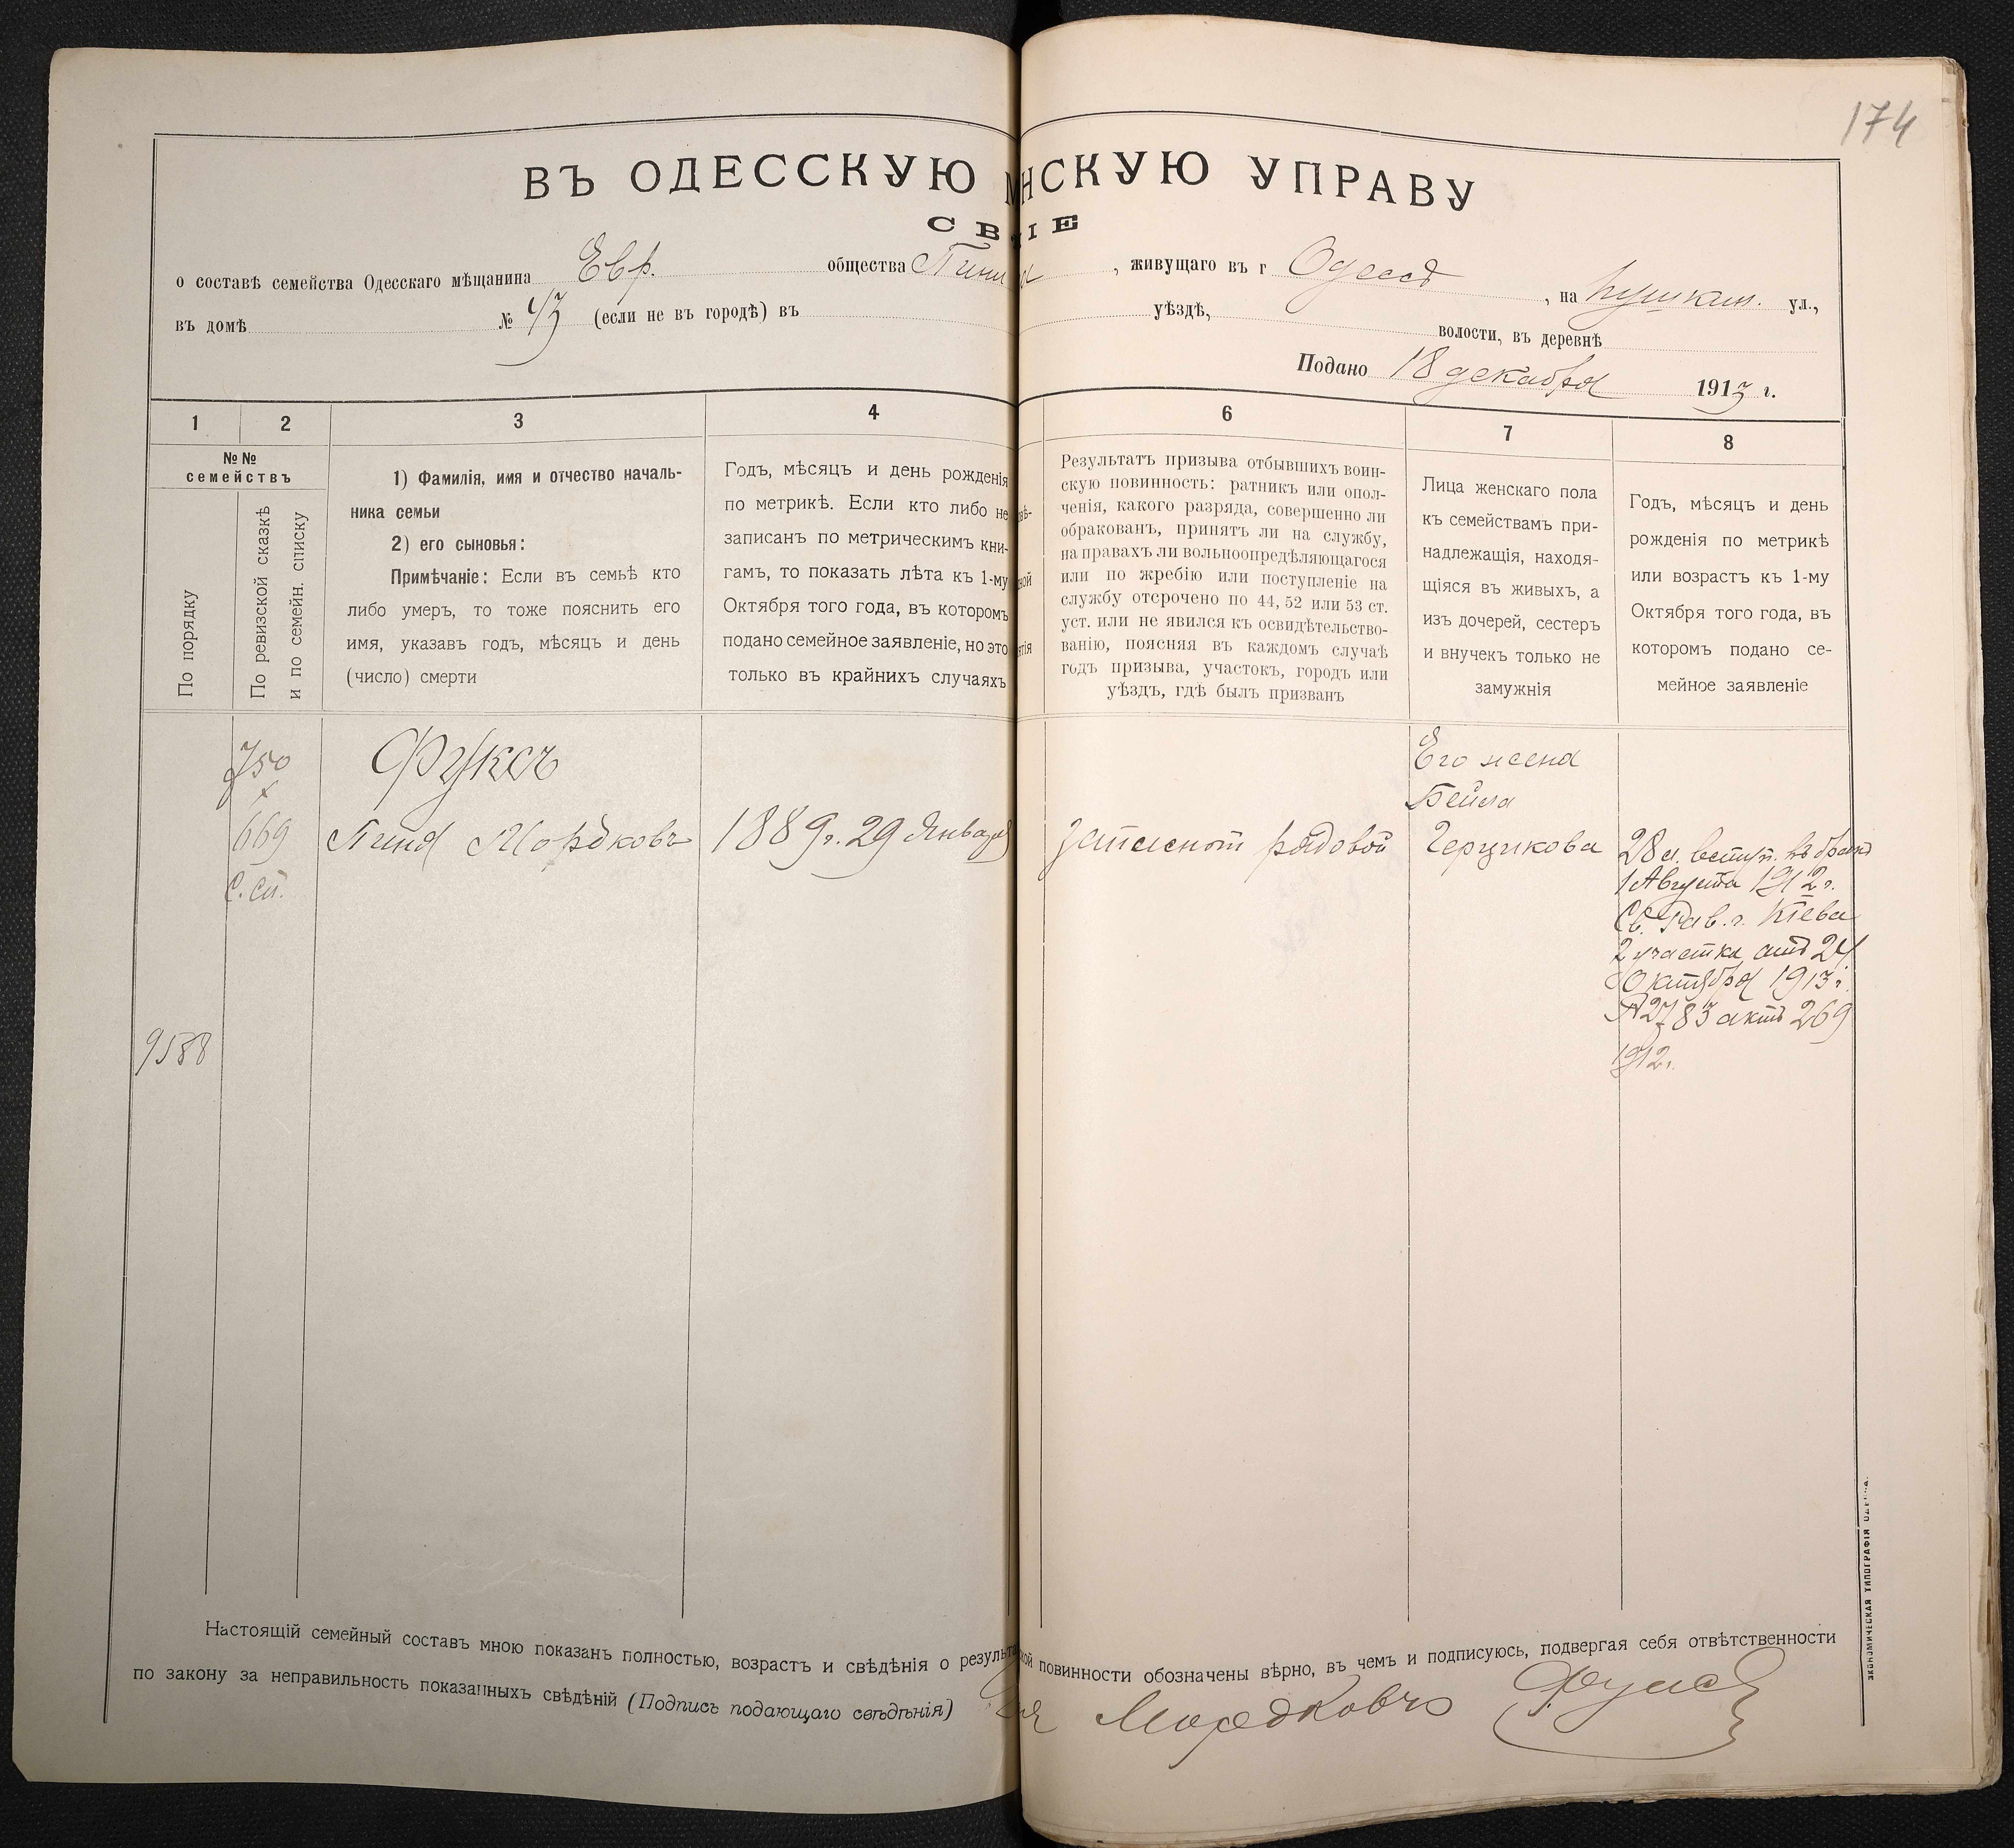 174
ВЪ ОДЕССКУЮ М НСКУЮ УПРАВУ
СВ ІЕ
о составѣ семейства Одесскаго мѣщанина Евр. общества Пини , живущаго въ г Одессѣ , на Пушкин. ул.,
въ домѣ № 43 (если не въ городѣ) въ уѣздѣ, волости, въ деревнѣ
Подано 18 декабря 1913 г.
1 2 3 4 6 7 8
№№
семействъ
По порядку
По ревизской сказкѣ
и по семейн. списку
1) Фамилія, имя и отчество началь-
ника семьи
2) его сыновья:
Примѣчаніе: Если въ семьѣ кто
либо умеръ, то тоже пояснить его
имя, указавъ годъ, мѣсяцъ и день
(число) смерти
Годъ, мѣсяцъ и день рожденія
по метрикѣ. Если кто либо не
записанъ по метрическимъ кни-
гамъ, то показать лѣта къ 1-му
Октября того года, въ которомъ
подано семейное заявленіе, но это
только въ крайнихъ случаяхъ
Результатъ призыва отбывшихъ воин-
скую повинность: ратникъ или опол-
ченія, какого разряда, совершенно ли
обракованъ, принятъ ли на службу,
на правахъ ли вольноопредѣляющагося
или по жребію или поступленіе на
службу отсрочено по 44, 52 или 53 ст.
уст. или не явился къ освидѣтельство-
ванію, поясняя въ каждомъ случаѣ
годъ призыва, участокъ, городъ или
уѣздъ, гдѣ былъ призванъ
Лица женскаго пола
къ семействамъ при-
надлежащія, находя-
щіяся въ живыхъ, а
изъ дочерей, сестеръ
и внучекъ только не
замужнія
Годъ, мѣсяцъ и день
рожденія по метрикѣ
или возрастъ къ 1-му
Октября того года, въ
которомъ подано се-
мейное заявленіе
750
669
С. сп.
9588
Фуксъ
Пиня Мордковъ
1889 г. 29 Января
рядовой
Его жена
Бейла
Герцикова
28 л. вступ. въ бракъ
1 Августа 1912 г.
Св. Рав. г. Кіева
2 участка отъ 24
Октября 1913 г.
№2783 актъ 269
1912 г.
Настоящій семейный составъ мною показанъ полностью, возрастъ и свѣдѣнія о резуль повинности обозначены вѣрно, въ чемъ и подписуюсь, подвергая себя отвѣтственности
по закону за неправильность показанныхъ свѣдѣній (Подпись подающаго свѣдѣнія) Мордковъ Фуксъ
ЭКОНОМИЧЕСКАЯ ТИПОГРАФІЯ